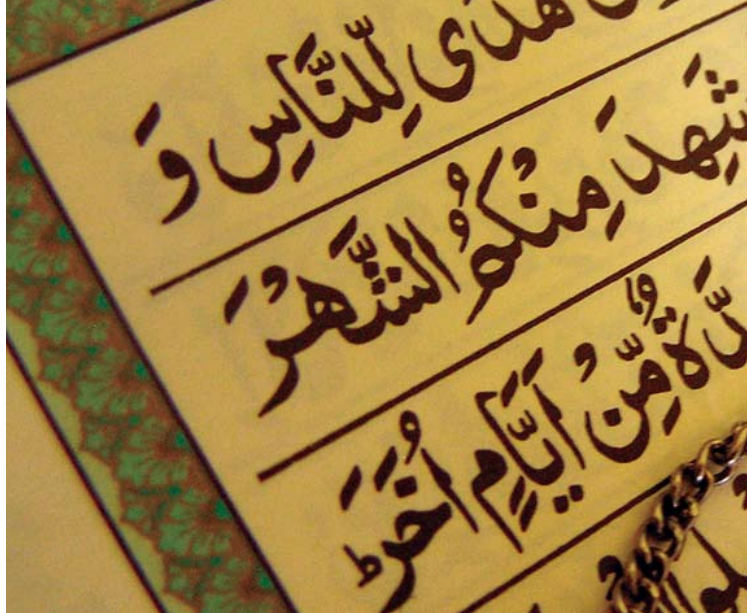 هُدًى لِّلنَّاسِ وَ
شَهِدَ مِنْكُمُ الشَّهْرَ
مِّنْ اَيَّامٍ اُخَرَ ؕ